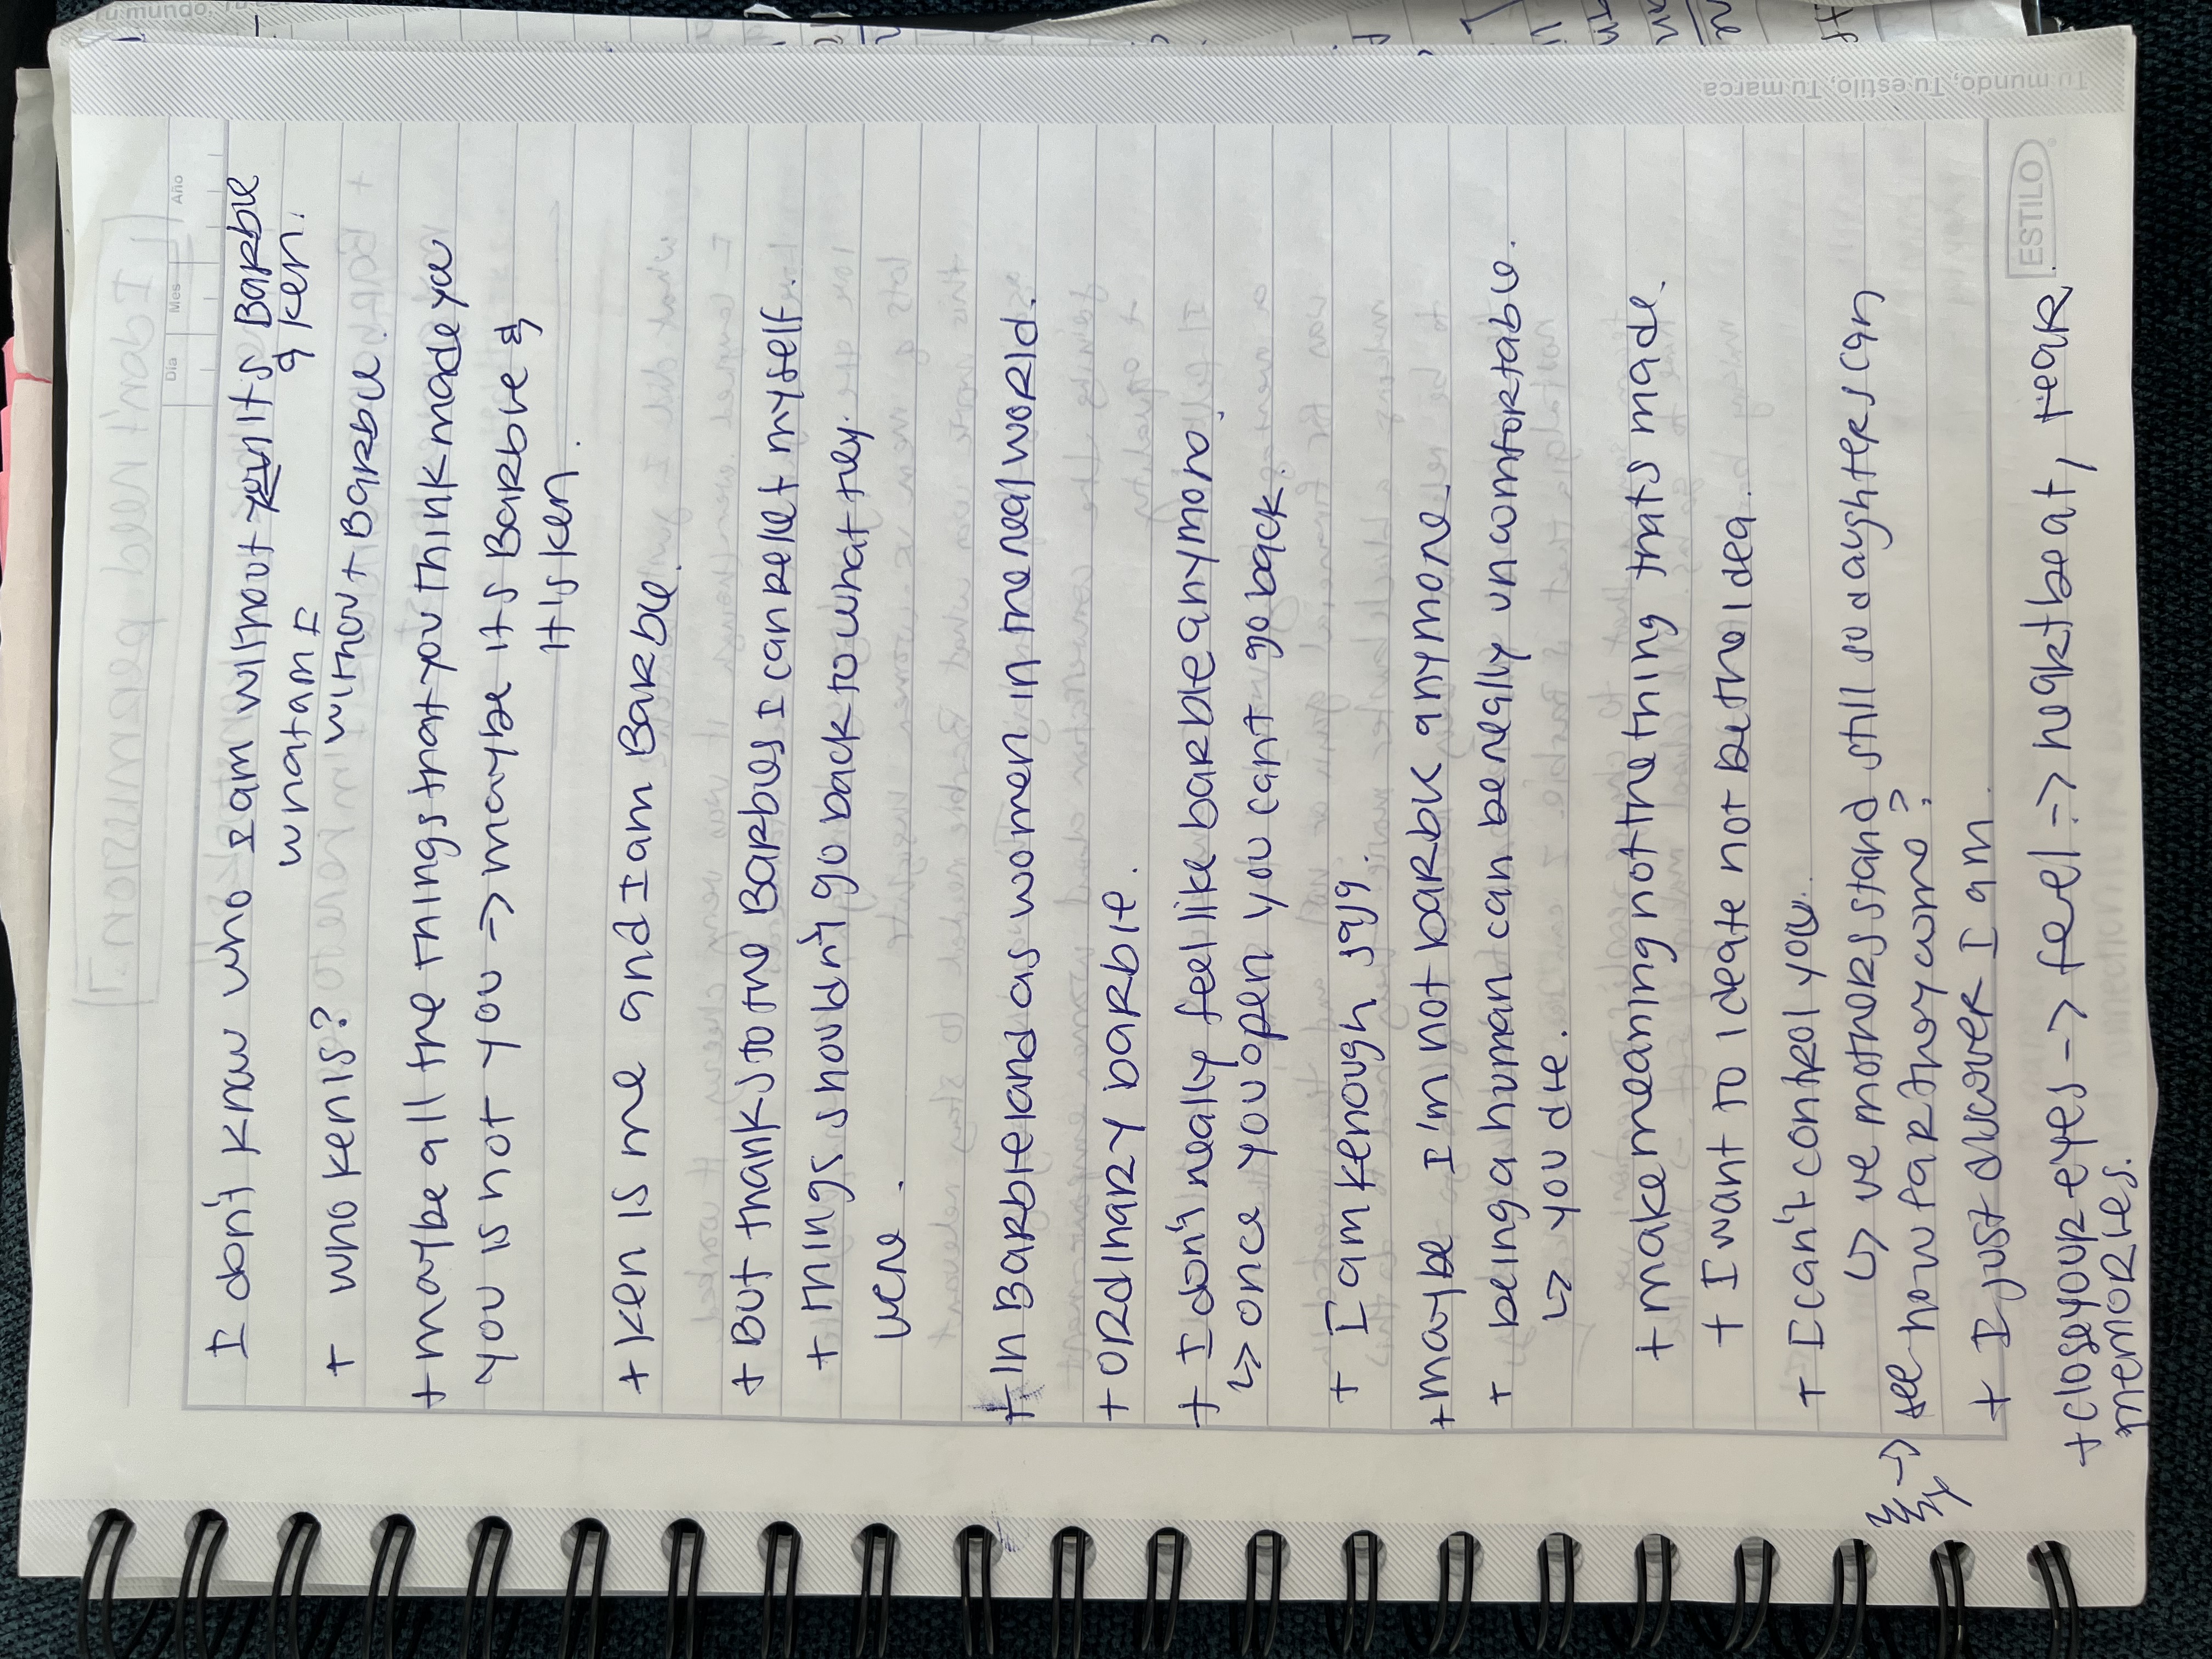 Tu mundo, Tu estilo, Tu marca
Día Mes Año
I don't know who I am without you its Barbie
& ken.
what am I
+ who ken is? without Barbie.
+ maybe all the things that you think made you
you is not you → maybe its Barbie &
It is ken.
+ Ken is me and I am Barbie.
+ But thanks to the Barbies I can relet myself.
+ Things shouldn't go back to what they
were.
+ In Barbieland as women in the real world.
+ ORDINARY barbie.
+ I don't really feel like barbie anymore.
↳ once you open you can't go back.
+ I am kenough says.
+ maybe I'm not barbie anymore.
+ being a human can be really uncomfortable.
↳ you die.
+ make meaning not the thing thats made.
+ I want to ideate not be the idea.
+ I can't control you.
↳ we mothers stand still so daughters can
→ see how far they come?
+ I just discover I am.
+ close your eyes → feel → heartbeat, tear
memories.
ESTILO